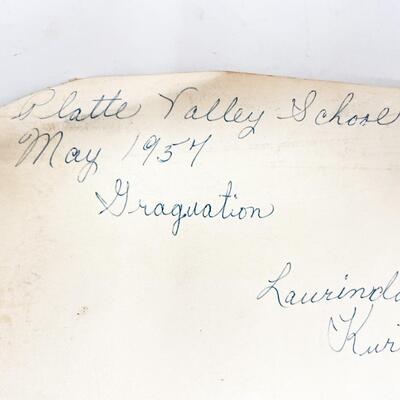 Platte Valley School
May 1957
Graguation
Laurinda
Kur